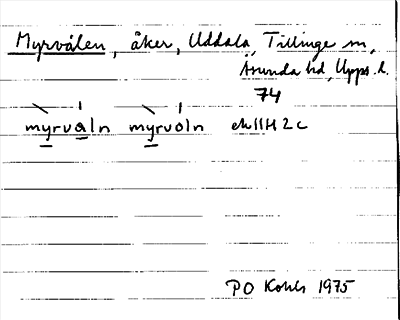 Myrvålen, åker, Uddala, Tillinge sn,
Åsunda hd, Upps. l.
74
myrvaln myrvoln ek 11H 2c
PO Kohls 1975